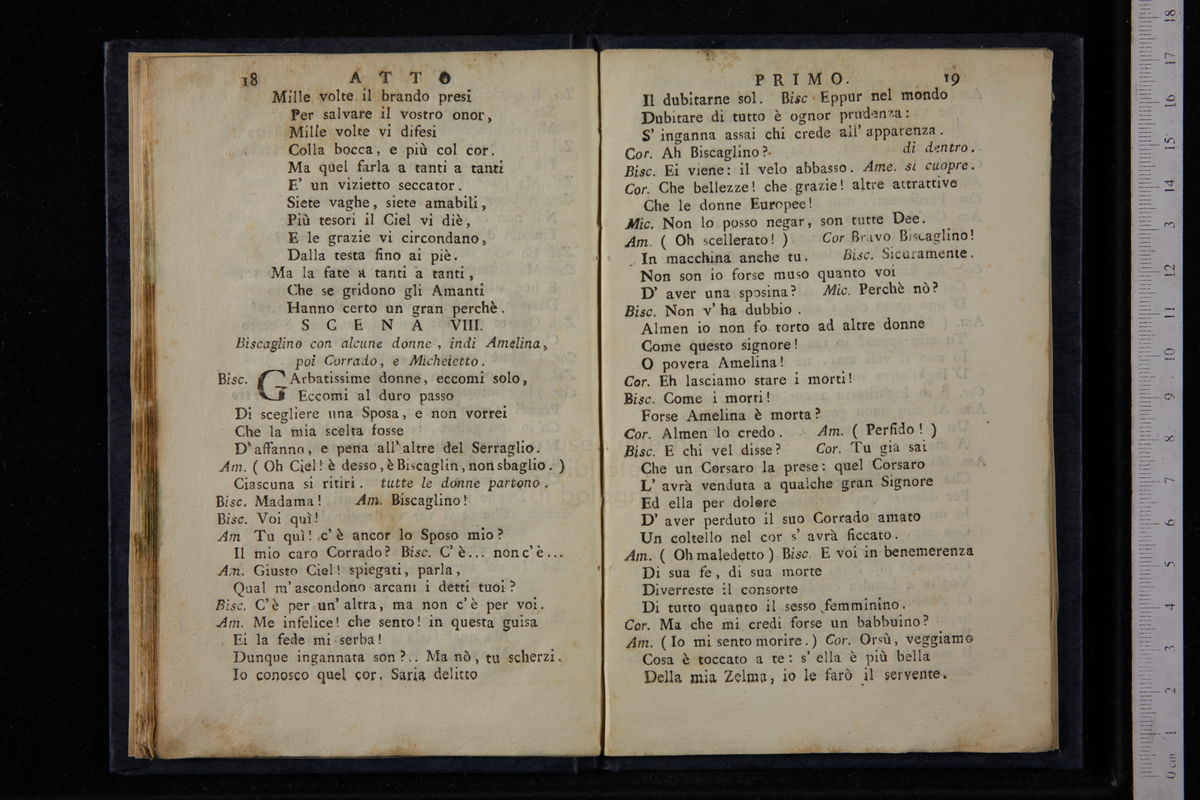 18 ATTO
Mille volte il brando presi
Per salvare il vostro onor,
Mille volte vi difesi
Colla bocca, e più col cor.
Ma quel farla a tanti a tanti
E' un vizietto seccator.
Siete vaghe, siete amabili,
Più tesori il Ciel vi diè,
E le grazie vi circondano,
Dalla testa fino ai piè.
Ma la fate a tanti a tanti,
Che se gridono gli Amanti
Hanno certo un gran perchè.
SCENA VIII.
Biscaglino con alcune donne, indi Amelina,
poi Corrado, e Micheietto.
Bisc. GArbatissime donne, eccomi solo,
Eccomi al duro passo
Di scegliere una Sposa, e non vorrei
Che la mia scelta fosse
D'affanno, e pena all'altre del Serraglio.
Am. ( Oh Ciel! è desso, è Biscaglin, non sbaglio. )
Ciascuna si ritiri. tutte le donne partono.
Bisc. Madama! Am. Biscaglino!
Bisc. Voi quì!
Am Tu quì! c'è ancor lo Sposo mio?
Il mio caro Corrado? Bisc. C'è... non c'è...
An. Giusto Ciel! spiegati, parla,
Qual m'ascondono arcani i detti tuoi?
Bisc. C'è per un' altra, ma non c'è per voi.
Am. Me infelice! che sento! in questa guisa
Ei la fede mi serba!
Dunque ingannata son?.. Ma nò, tu scherzi.
Io conosco quel cor. Saria delitto
PRIMO. 19
Il dubitarne sol. Bisc Eppur nel mondo
Dubitare di tutto è ognor prudenza:
S' inganna assai chi crede all' apparenza.
Cor. Ah Biscaglino? di dentro.
Bisc. Ei viene: il velo abbasso. Ame. si cuopre.
Cor. Che bellezze! che grazie! altre attrattive
Che le donne Europee!
Mic. Non lo posso negar, son tutte Dee.
Am. ( Oh scellerato! ) Cor Bravo Biscaglino!
In macchina anche tu. Bisc. Sicuramente.
Non son io forse muso quanto voi
D' aver una sposina? Mic. Perchè nò?
Bisc. Non v' ha dubbio.
Almen io non fo torto ad altre donne
Come questo signore!
O povera Amelina!
Cor. Eh lasciamo stare i morti!
Bisc. Come i morti!
Forse Amelina è morta?
Cor. Almen lo credo. Am. ( Perfido! )
Bisc. E chi vel disse? Cor. Tu già sai
Che un Corsaro la prese: quel Corsaro
L' avrà venduta a qualche gran Signore
Ed ella per dolore
D' aver perduto il suo Corrado amato
Un coltello nel cor s' avrà ficcato.
Am. ( Oh maledetto ) Bisc. E voi in benemerenza
Di sua fe, di sua morte
Diverreste il consorte
Di tutto quanto il sesso femminino.
Cor. Ma che mi credi forse un babbuino?
Am. (Io mi sento morire.) Cor. Orsù, veggiamo
Cosa è toccato a te: s' ella è più bella
Della mia Zelma, io le farò il servente.
0 cm 1 2 3 4 5 6 7 8 9 10 11 12 13 14 15 16 17 18